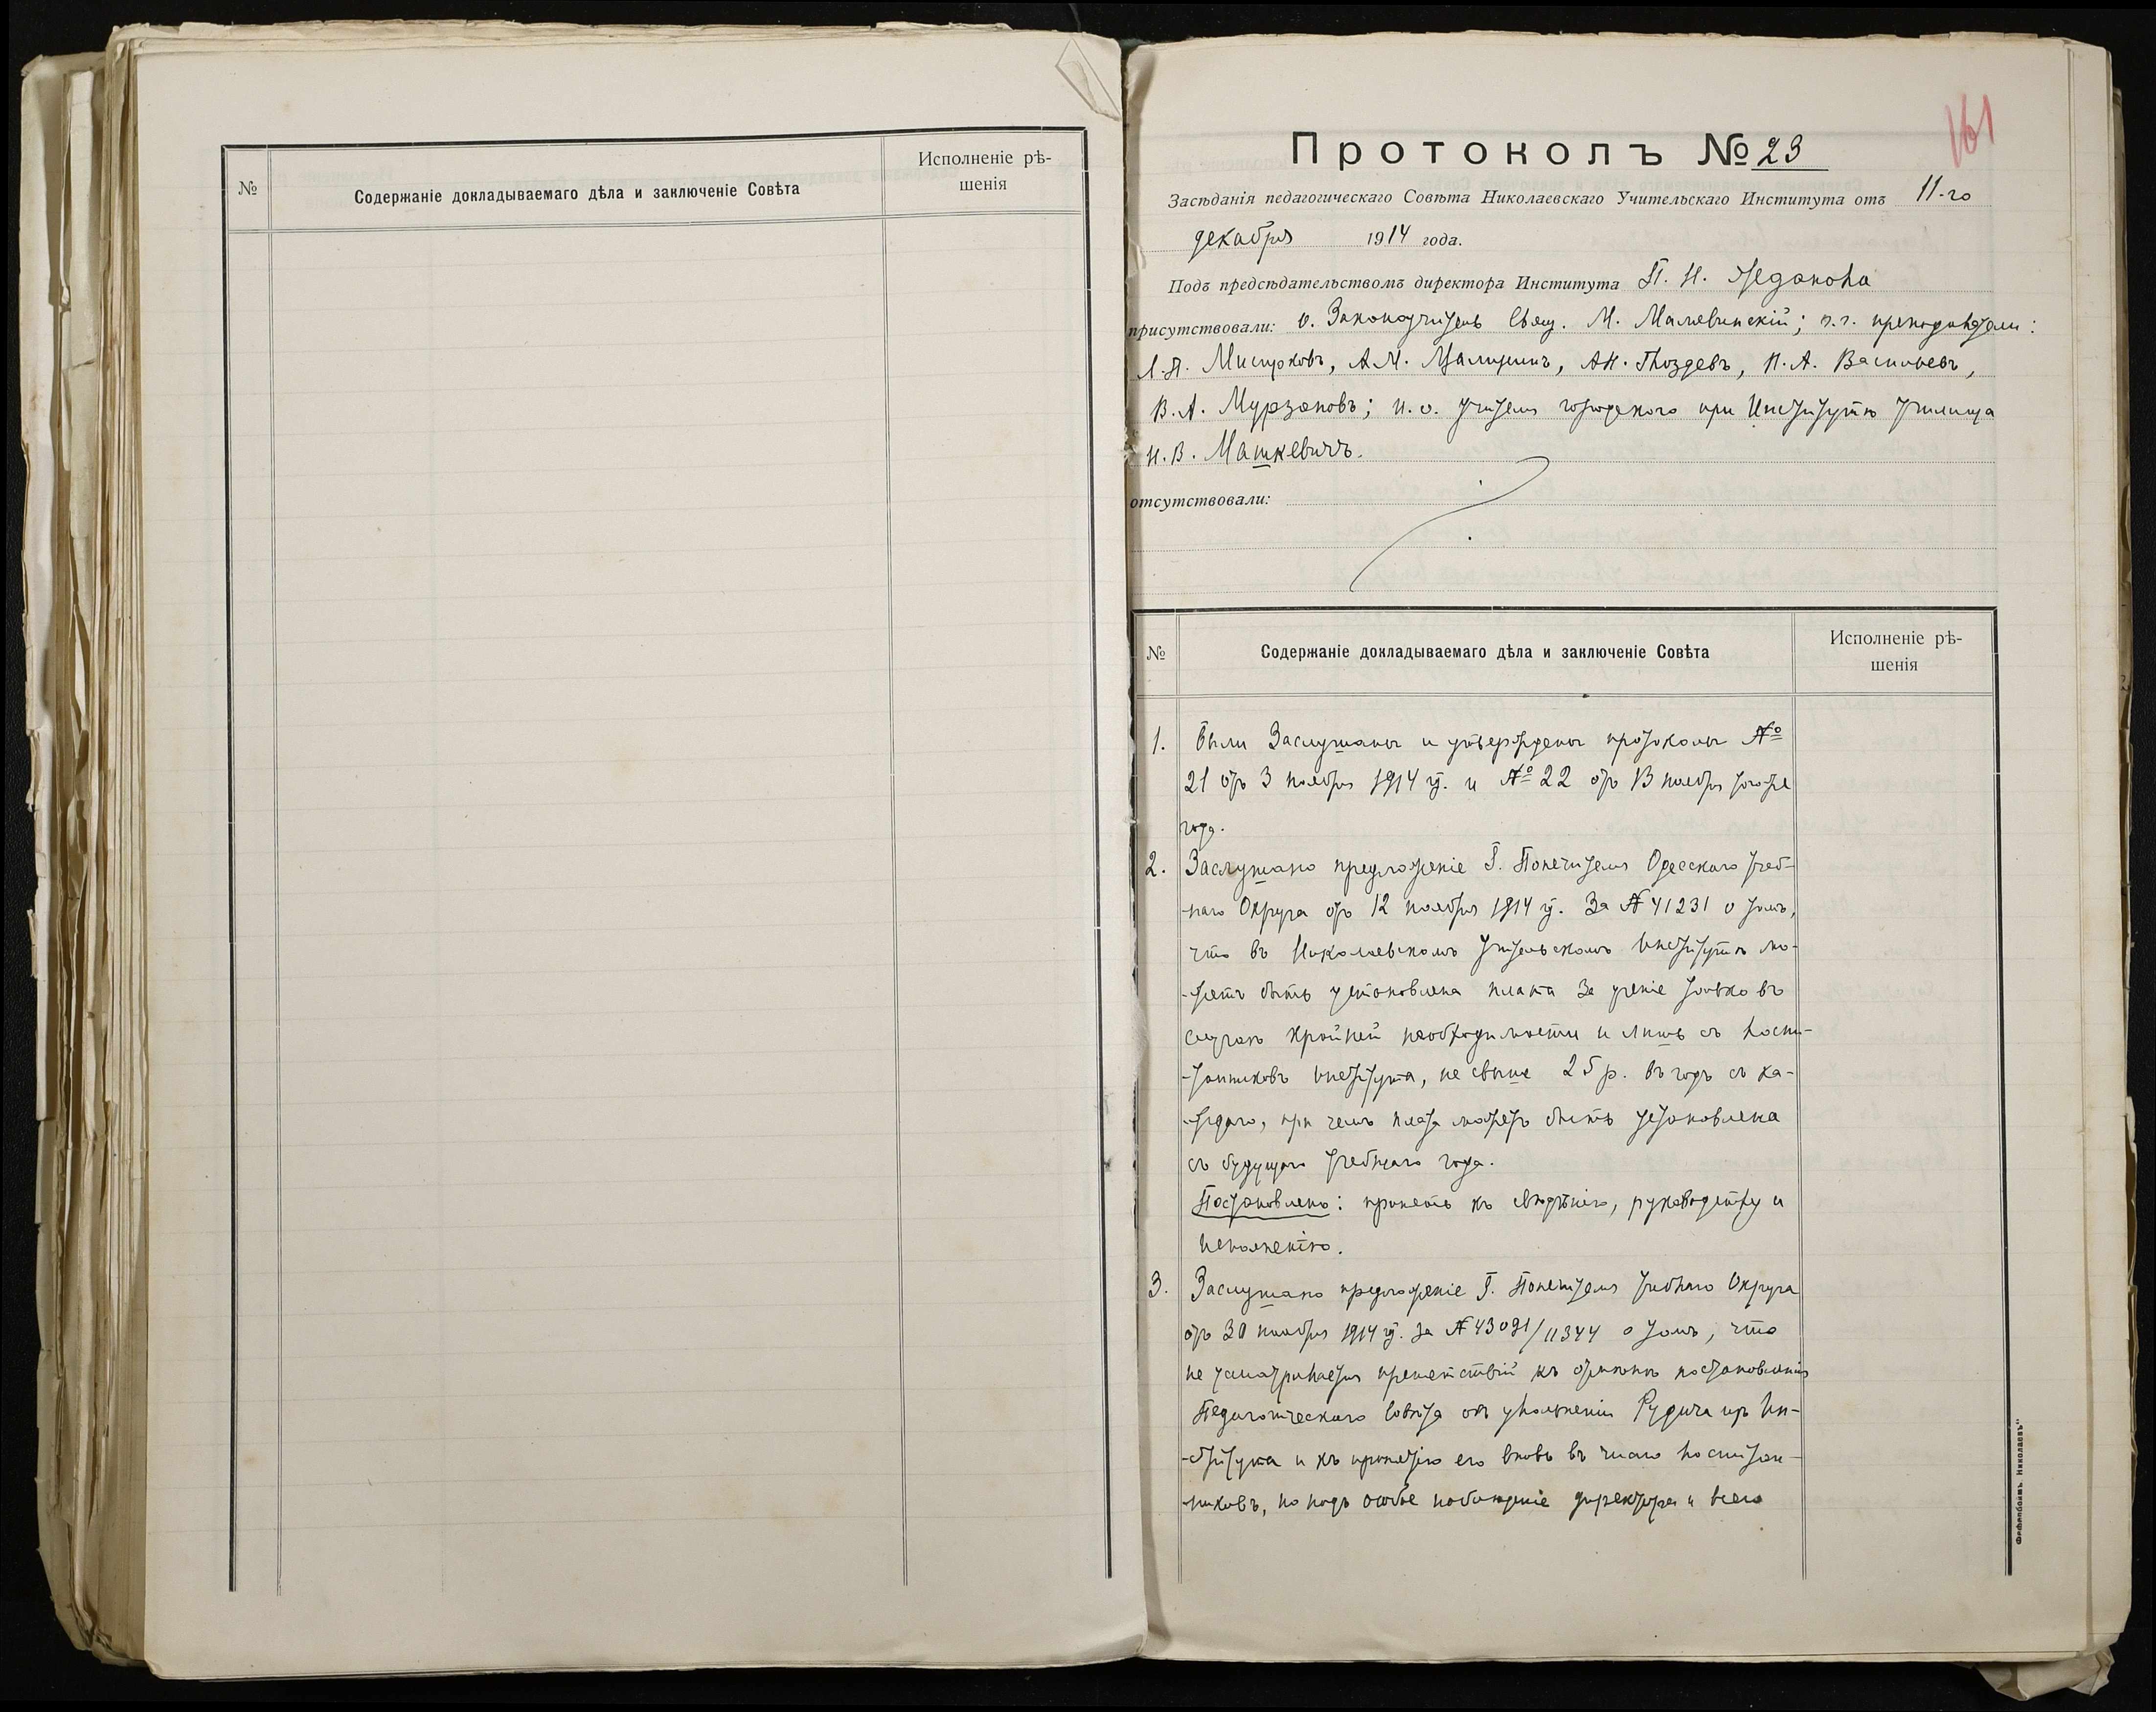 №
Содержаніе докладываемаго дѣла и заключеніе Совѣта
Исполненіе рѣ-
шенія
161
Протоколъ № 23
Засѣданія педагогическаго Совѣта Николаевскаго Учительскаго Института отъ 11-го
декабря 1914 года.
Подъ предсѣдательствомъ директора Института П. Н.
присутствовали: о. Законоучитель Свящ. М. Малевинскій; г.г. преподаватели:
Л.П. Мисирковъ, А.М. А.Н. Гвоздевъ, П. А. Васильевъ,
В. А. Мурзановъ; и. о. учителя городского при Институтѣ училища
Н. В. Машкевичъ.
отсутствовали:
№
Содержаніе докладываемаго дѣла и заключеніе Совѣта
Исполненіе рѣ-
шенія
1. Были заслушаны и утверждены протоколы №
21 отъ 3 ноября 1914 г. и № 22 отъ 13 ноября того же
года.
2. Заслушано предложеніе Г. Попечителя Одесскаго Учеб-
-наго Округа отъ 12 ноября 1914 г. за № 41231 о томъ,
что въ Николаевскомъ Учительскомъ Институтѣ мо-
-жетъ быть установлена плата за ученіе только въ
случаѣ крайней необходимости и лишь съ воспи-
-танниковъ Института, не свыше 25 р. въ годъ съ ка-
-ждаго, при чемъ плата можетъ быть установлена
съ будущаго учебнаго года.
Постановлено: принять къ свѣдѣнію, руководству и
исполненію.
3. Заслушано предложеніе Г. Попечителя Учебнаго Округа
отъ 30 ноября 1914 г. за № 43091/11344 о томъ, что
не усматривается препятствій къ отмѣнѣ постановленія
Педагогическаго Совѣта объ увольненіи Рудича изъ Ин-
-ститута и къ принятію его вновь въ число воспитан-
-никовъ, но подъ особое наблюденіе директора и всего
Николаевъ"